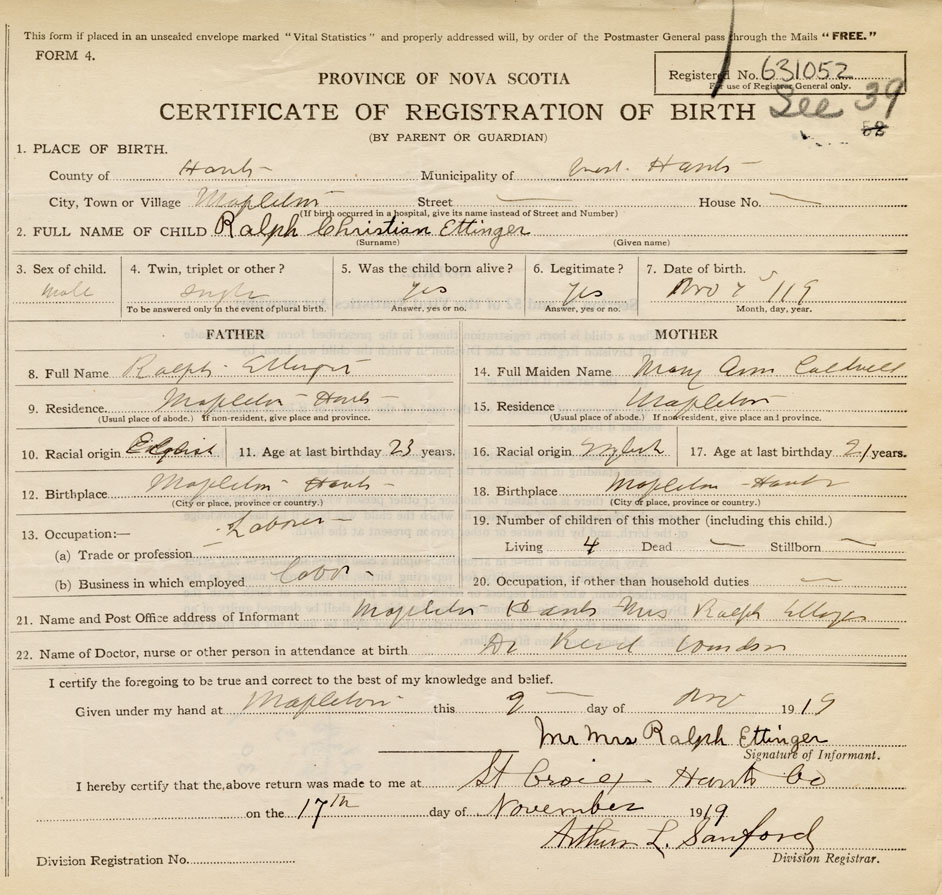 This form if placed in an unsealed envelope marked "Vital Statistics" and properly addressed will, by order of the Postmaster General pass through the Mails "FREE."
FORM 4.
Registered No. 631052
For use of Registrar General only.
PROVINCE OF NOVA SCOTIA
See 39
CERTIFICATE OF REGISTRATION OF BIRTH
52
(BY PARENT OR GUARDIAN)
1. PLACE OF BIRTH.
County of Hants Municipality of West Hants
City, Town or Village Mapleton Street House No.
(If birth occurred in a hospital, give its name instead of Street and Number)
2. FULL NAME OF CHILD Ralph Christian Ettinger
(Surname) (Given name)
3. Sex of child. 4. Twin, triplet or other? 5. Was the child born alive? 6. Legitimate? 7. Date of birth.
Male Single Yes Yes Nov 119
To be answered only in the event of plural birth. Answer, yes or no. Answer, yes or no. Month, day, year.
FATHER MOTHER
8. Full Name Ralph Ettinger 14. Full Maiden Name Mary Ann Caldwell
9. Residence. Mapleton Hants 15. Residence Mapleton
(Usual place of abode.) If non-resident, give place and province. (Usual place of abode.) If non-resident, give place and province.
10. Racial origin English 11. Age at last birthday 23 years. 16. Racial origin English 17. Age at last birthday 21 years.
12. Birthplace Mapleton Hants 18. Birthplace Mapleton Hants
(City or place, province or country.) (City or place, province or country.)
13. Occupation:— Laborer 19. Number of children of this mother (including this child.)
(a) Trade or profession Living 4 Dead — Stillborn —
(b) Business in which employed Labor 20. Occupation, if other than household duties —
21. Name and Post Office address of Informant Mapleton Hants Mrs Ralph Ettinger
22. Name of Doctor, nurse or other person in attendance at birth Dr Reid Windsor
I certify the foregoing to be true and correct to the best of my knowledge and belief.
Given under my hand at Mapleton this 9 day of Nov 1919
Mr Mrs Ralph Ettinger
Signature of Informant.
I hereby certify that the above return was made to me at St Croix Hants Co
on the 17th day of November 1919
Arthur L. Sanford
Division Registration No. Division Registrar.